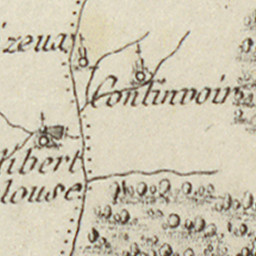 izeuay
Continvoir
libert
louse